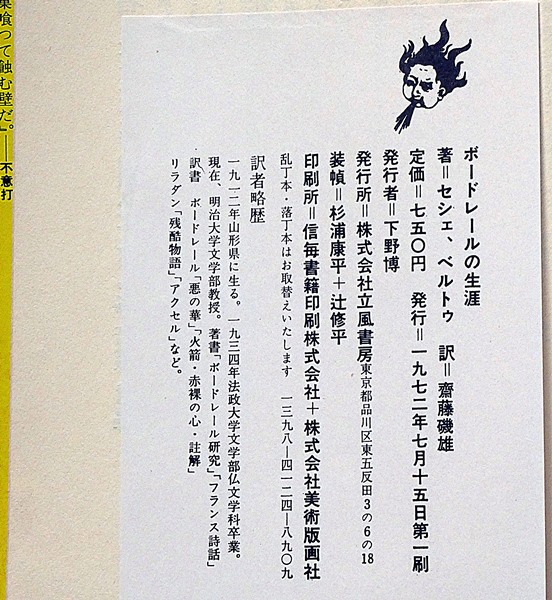 ボードレールの生涯
著＝セシェ、ベルトゥ　訳＝齋藤磯雄
定価＝七五〇円　発行＝一九七二年七月十五日第一刷
発行者＝下野博
発行所＝株式会社立風書房東京都品川区東五反田3の6の18
装幀＝杉浦康平＋辻修平
印刷所＝信毎書籍印刷株式会社＋株式会社美術版画社
乱丁本・落丁本はお取替えいたします　一三九八―四一二四―八九〇九
訳者略歴
一九一二年山形県に生る。一九三四年法政大学文学部仏文学科卒業。
現在、明治大学文学部教授。著書「ボードレール研究」「フランス詩話」
訳書　ボードレール「悪の華」「火箭・赤裸の心・註解」
リラダン「残酷物語」「アクセル」など。
巣喰つて蝕む壁だ。」――不意打